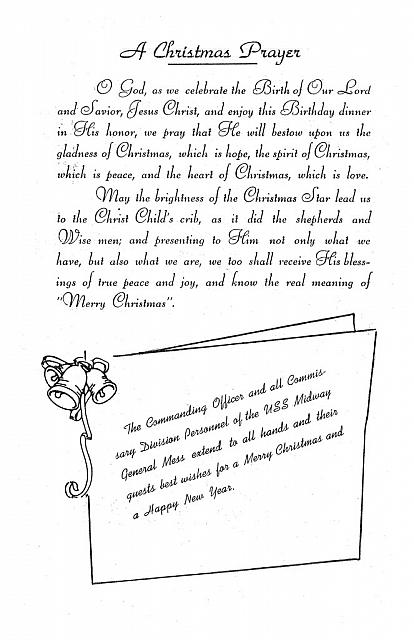 A Christmas Prayer
O God, as we celebrate the Birth of Our Lord
and Savior, Jesus Christ, and enjoy this Birthday dinner
in His honor, we pray that He will bestow upon us the
gladness of Christmas, which is hope, the spirit of Christmas,
which is peace, and the heart of Christmas, which is love.
May the brightness of the Christmas Star lead us
to the Christ Child's crib, as it did the shepherds and
Wise men; and presenting to Him not only what we
have, but also what we are, we too shall receive His bless-
ings of true peace and joy, and know the real meaning of
"Merry Christmas".
The Commanding Officer and all Commis-
sary Division Personnel of the USS Midway
General Mess extend to all hands and their
guests best wishes for a Merry Christmas and
a Happy New Year.